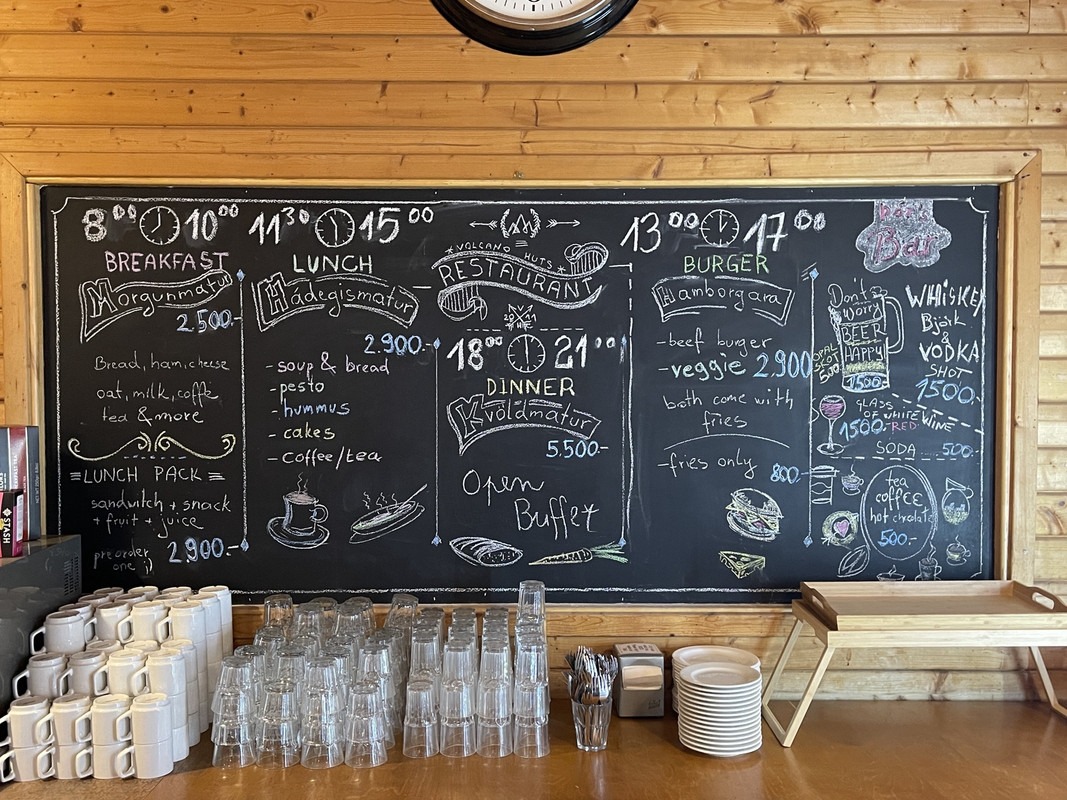 8⁰⁰ 10⁰⁰
BREAKFAST
Morgunmatur
2500.-
Bread, ham, cheese
oat, milk, coffe,
tea & more
LUNCH PACK
sandwitch + snack
+ fruit + juice
pre order
one ;)
2.900.-
11³⁰ 15⁰⁰
LUNCH
Hádegismatur
2.900.-
- soup & bread
- pesto
- hummus
- cakes
- coffee/tea
VOLCANO HUTS
RESTAURANT
2011
18⁰⁰ 21⁰⁰
DINNER
Kvöldmatur
5.500.-
Open
Buffet
13⁰⁰ 17⁰⁰
BURGER
Hamborgara
- beef burger
- veggie 2.900
both come with
fries
- fries only 800.-
Bar
Don't
Worry
BEER
HAPPY
1500.-
OPAL
SHOT
500
WHISKEY
Björk
&
VODKA
SHOT
1500.-
GLASS
OF WHITE WINE
RED
1500.-
SODA 500.-
tea
coffEE
hot chcolate
500.-
STASH